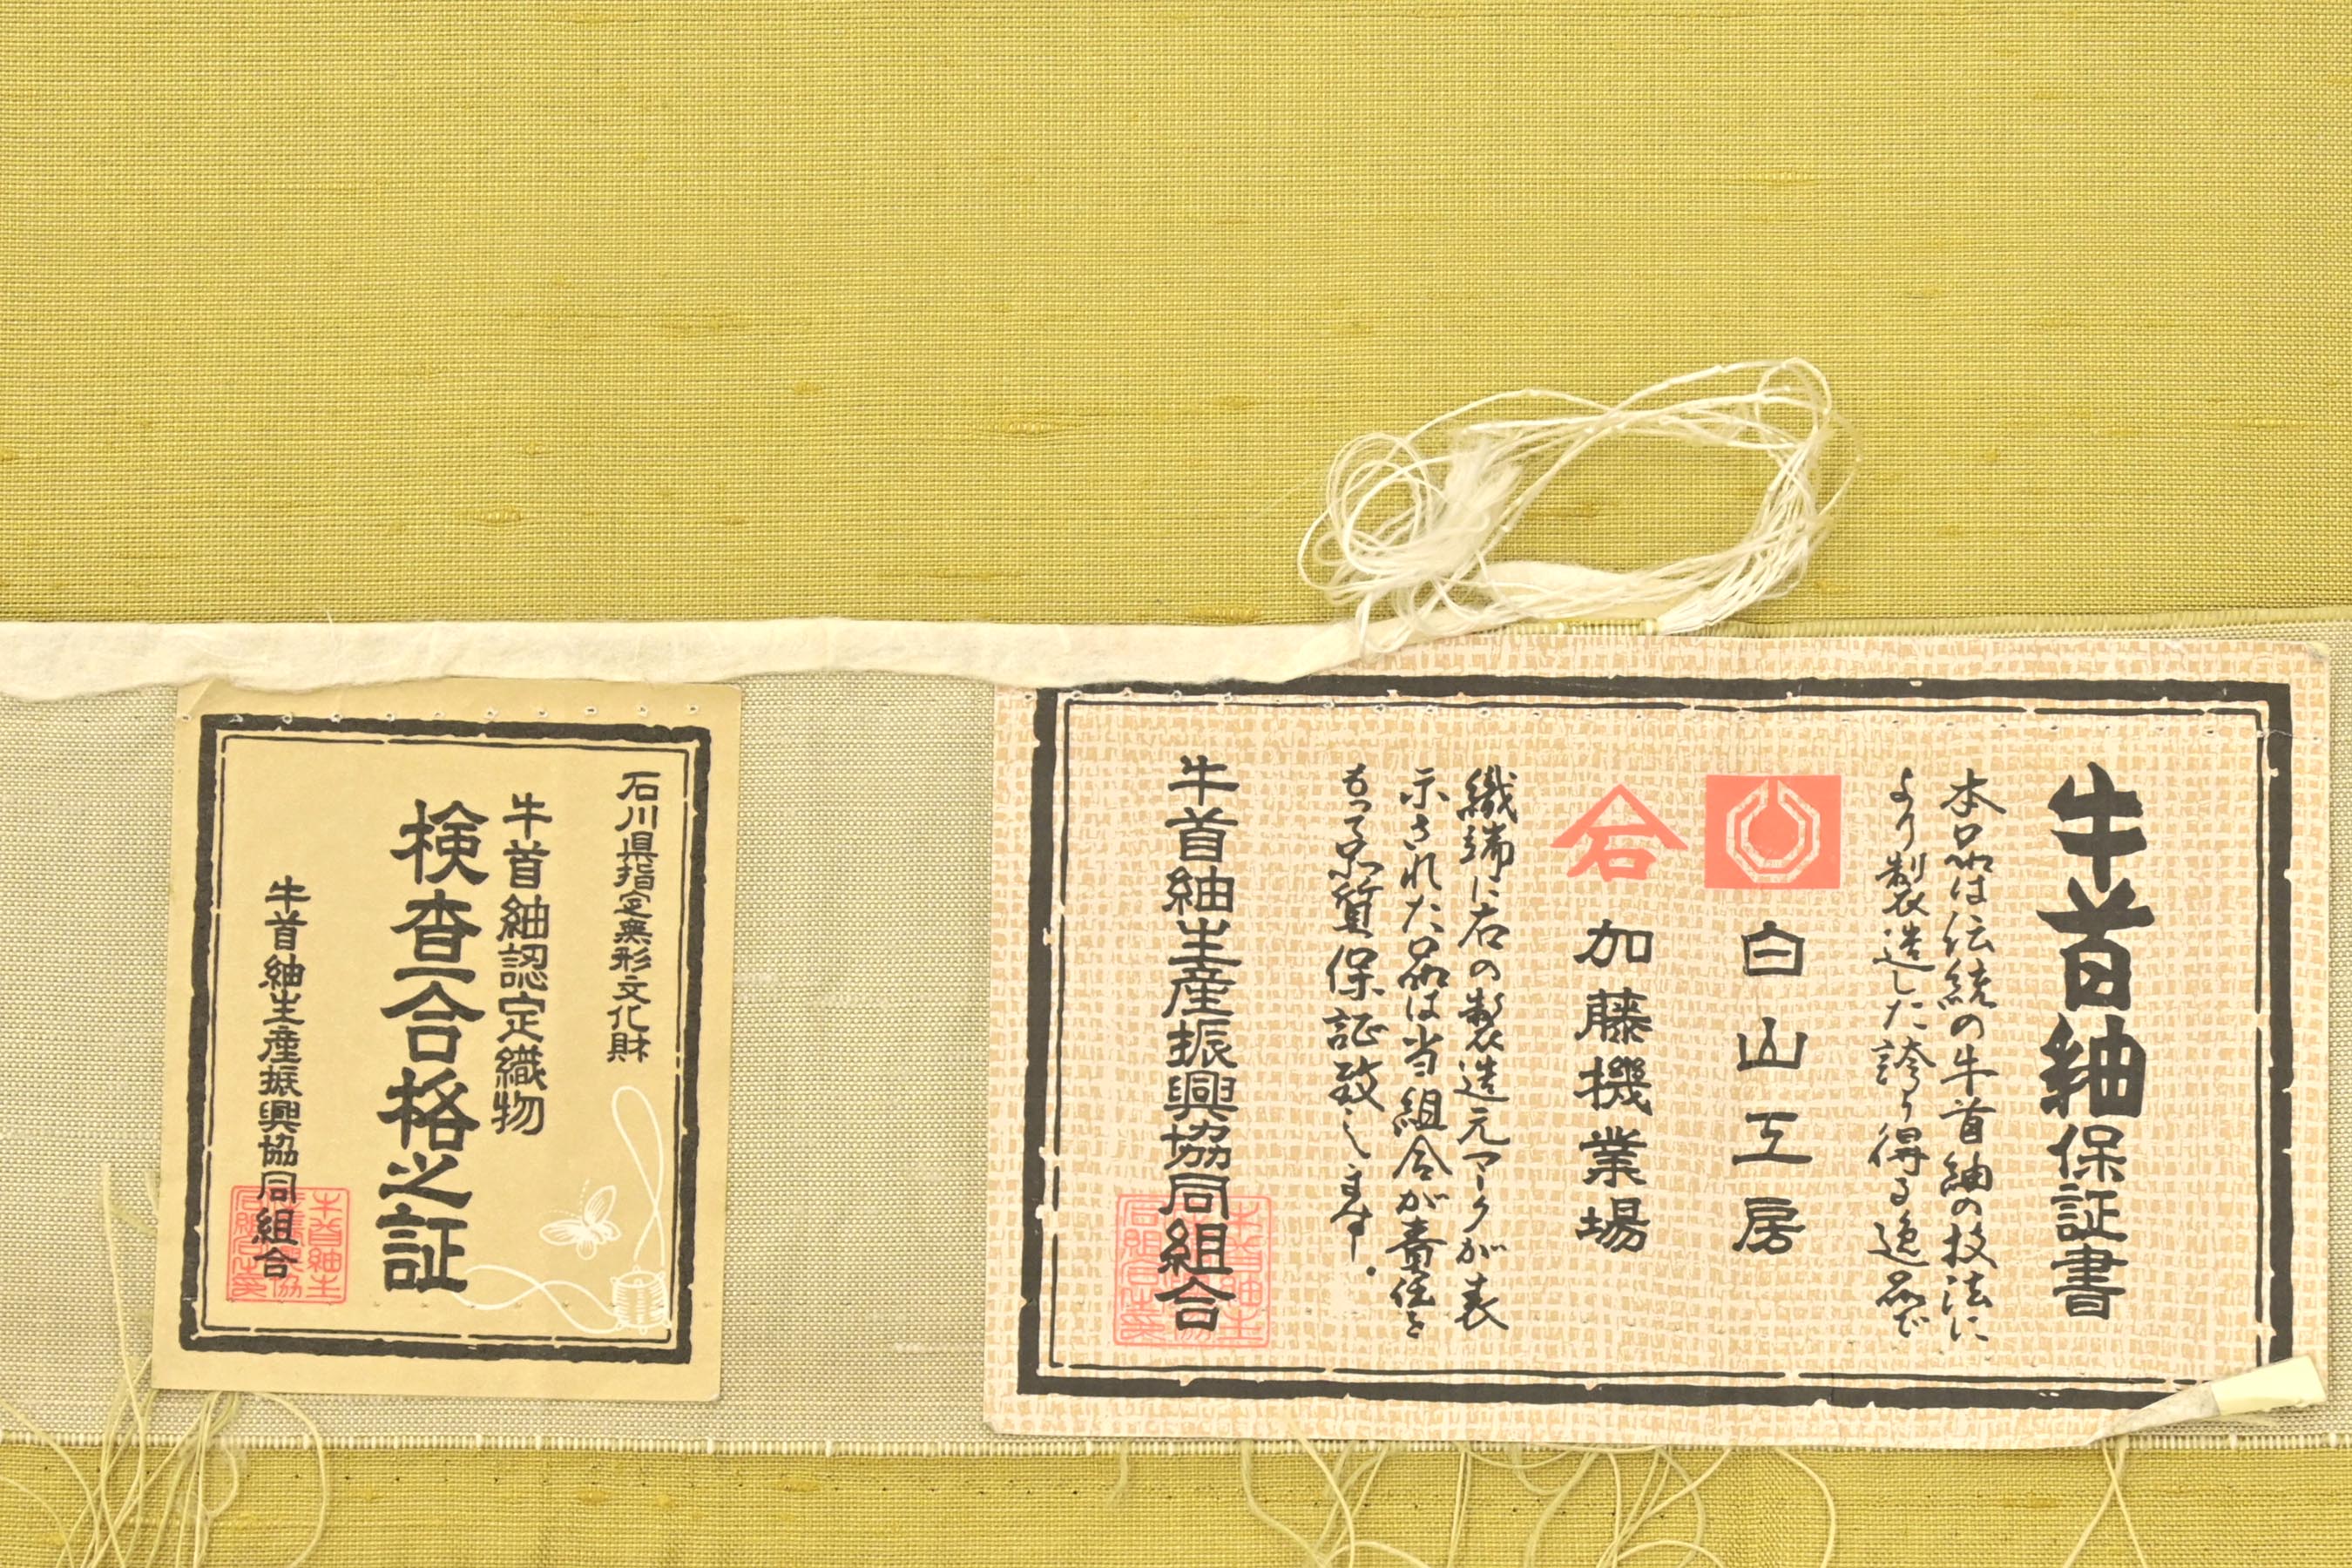 牛首紬保証書
本品は伝統の牛首紬の技法に
より製造した誇り得る逸品で
白山工房
加藤機業場
織端に右の製造元マークが表
示された品は当組合が責任を
もって品質保証致します.
牛首紬生産振興協同組合
石川県指定無形文化財
牛首紬認定織物
検査合格之証
牛首紬生産振興協同組合